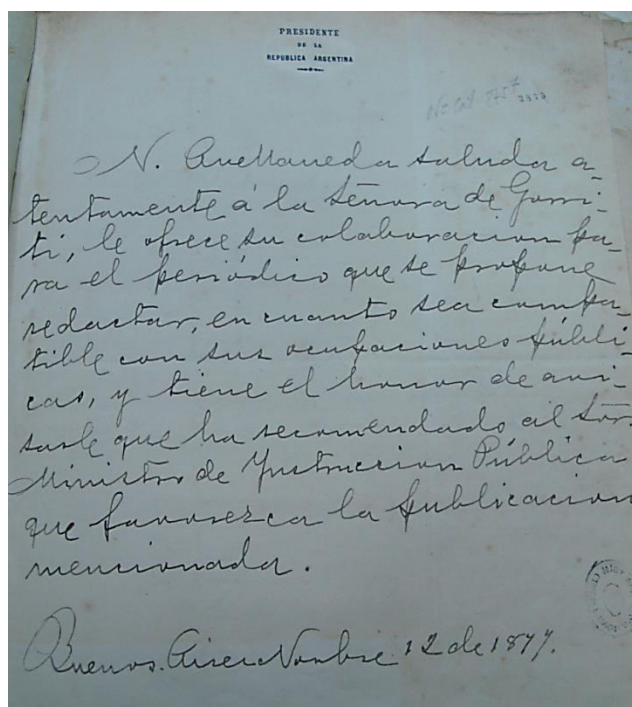 PRESIDENTE
DE LA
REPUBLICA ARGENTINA
N. Avellaneda saluda a-
tentamente á la Señora de Gorri-
ti, le ofrece su colaboracion pa-
ra el periódico que se propone
redactar, en cuanto sea compa-
tible con sus ocupaciones públi-
cas, y tiene el honor de avi-
sarle que ha recomendado al Sor.
Ministro de Ynstruccion Pública
que favorezca la publicacion
mencionada.
Buenos Aires Novbre 12 de 1877.